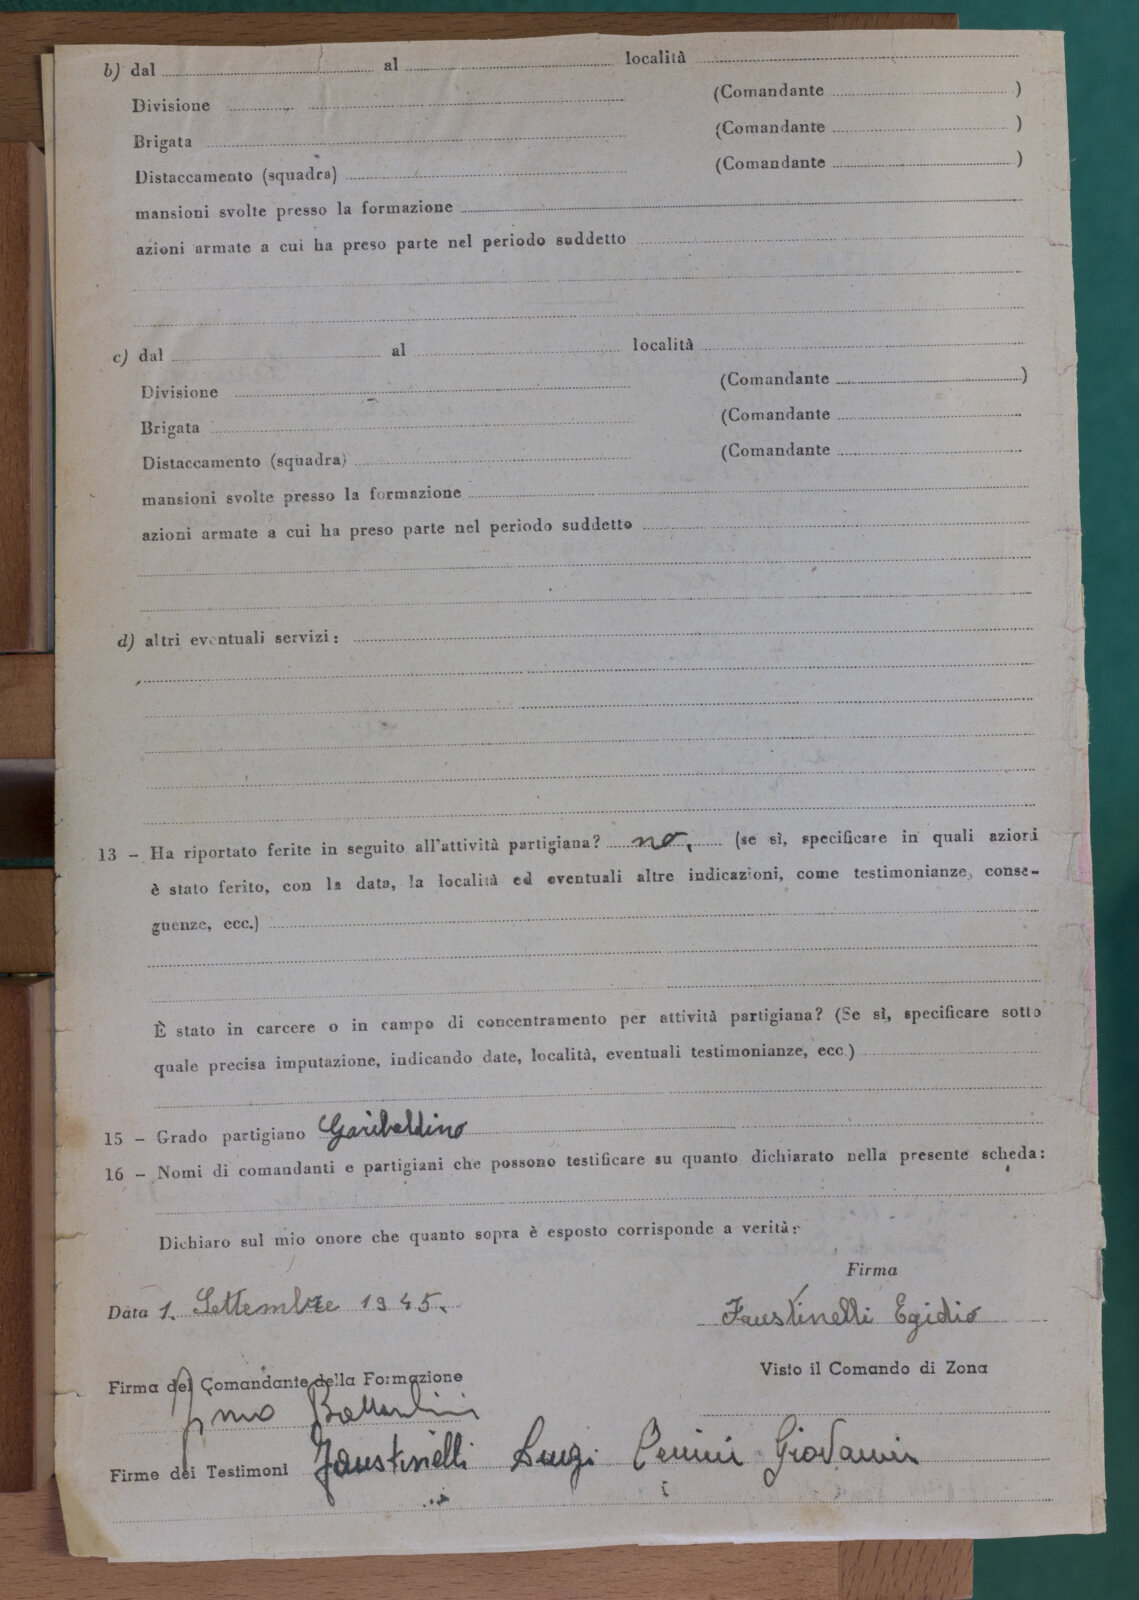 b) dal al località
Divisione (Comandante )
Brigata (Comandante )
Distaccamento (squadra) (Comandante )
mansioni svolte presso la formazione
azioni armate a cui ha preso parte nel periodo suddetto
c) dal al località
Divisione (Comandante )
Brigata (Comandante
Distaccamento (squadra) (Comandante
mansioni svolte presso la formazione
azioni armate a cui ha preso parte nel periodo suddetto
d) altri eventuali servizi:
13 – Ha riportato ferite in seguito all'attività partigiana? no. (se sì, specificare in quali azioni
è stato ferito, con la data, la località ed eventuali altre indicazioni, come testimonianze, conse-
guenze, ecc.)
È stato in carcere o in campo di concentramento per attività partigiana? (Se sì, specificare sotto
quale precisa imputazione, indicando date, località, eventuali testimonianze, ecc.)
15 – Grado partigiano Garibaldino
16 – Nomi di comandanti e partigiani che possono testificare su quanto dichiarato nella presente scheda:
Dichiaro sul mio onore che quanto sopra è esposto corrisponde a verità:
Firma
Data 1. Settembre 1945. Faustinelli Egidio
Firma del Comandante della Formazione Visto il Comando di Zona
Firme dei Testimoni Faustinelli Luigi Giovanni